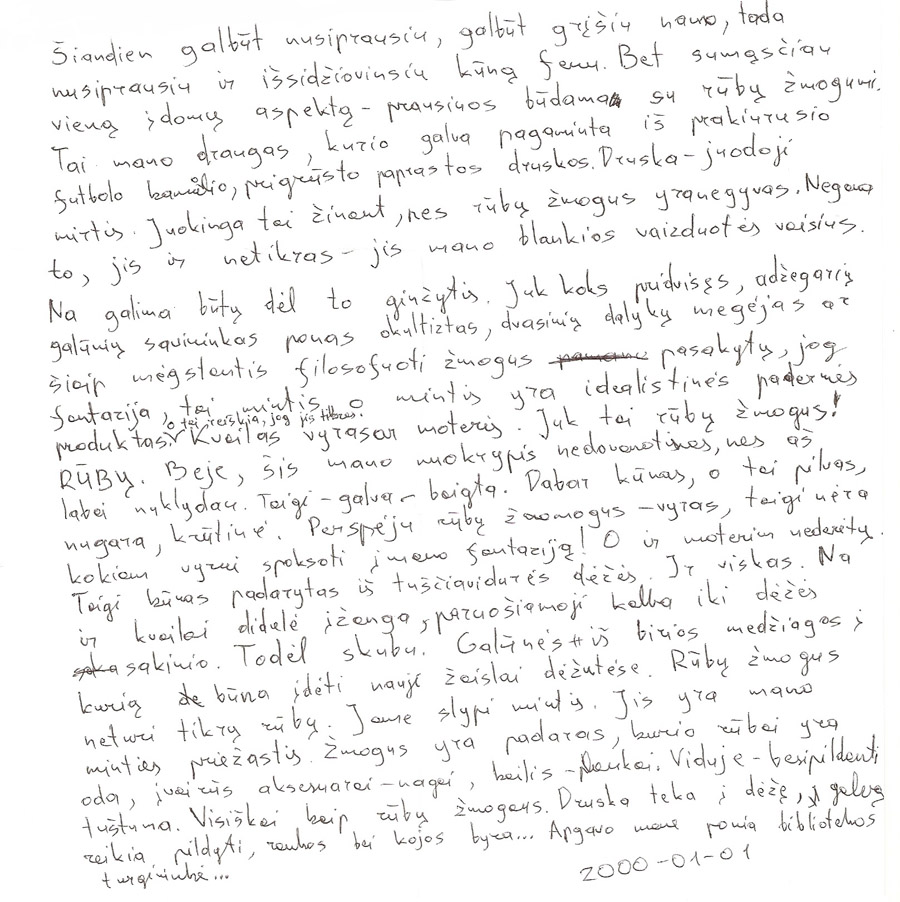 Šiandien galbūt nusiprausiu, galbūt grįšiu namo, tada
nusiprausiu ir išsidžiovinsiu kūną fenu. Bet sumąsčiau
vieną įdomų aspektą - prausiuos būdama su rūbų žmogumi.
Tai mano draugas, kurio galva pagaminta iš prakiurusio
futbolo kamuolio, prigrūsto paprastos druskos. Druska - juodoji
mirtis. Juokinga tai žinant, nes rūbų žmogus yra negyvas. Negana
to, jis ir netikras - jis mano blankios vaizduotės vaisius.
Na galima būtų dėl to ginčytis. Juk koks pridvisęs, adžegarių
galūnių savininkas ponas okultiztas, dvasinių dalykų megėjas ar
šiaip mėgstantis filosofuoti žmogus pasakytų, jog
fantazija, tai mintis, o mintis yra idealistinės padermės
o tai reiškia, jog jis tikras.
produktas. Kvailas vyrasar moteris. Juk tai rūbų žmogus!
RŪBŲ. Beje, šis mano nuokrypis nedovanotinas, nes aš
labai nuklydau. Taigi - galva - baigta. Dabar kūnas, o tai pilvas,
nugara, krūtinė. Perspėju rūbų žmogus - vyras, taigi nėra
kokiam vyrui spoksoti į mano fantaziją! O ir moterim nederėtų.
Taigi kūnas padarytas iš tuščiavidurės dėžės. Ir viskas. Na
ir kvailai didelė įžanga, paruošiamoji kalba iki dėžės
sakinio. Todėl skubu. Galūnės iš birios medžiagos į
kurią būna įdėti nauji žaislai dėžutėse. Rūbų žmogus
neturi tikrų rūbų. Jame slypi mintis. Jis yra mano
minties priežastis. Žmogus yra padaras, kurio rūbai yra
oda, įvairūs aksesuarai - nagai, kailis - plaukai. Viduje - besipildanti
tuštuma. Visiškai kaip rūbų žmogaus. Druska teka į dėžę, galvą
reikia pildyti, rankos bei kojos byra... Apgavo mane ponia bibliotekos
turgininkė...
2000-01-01